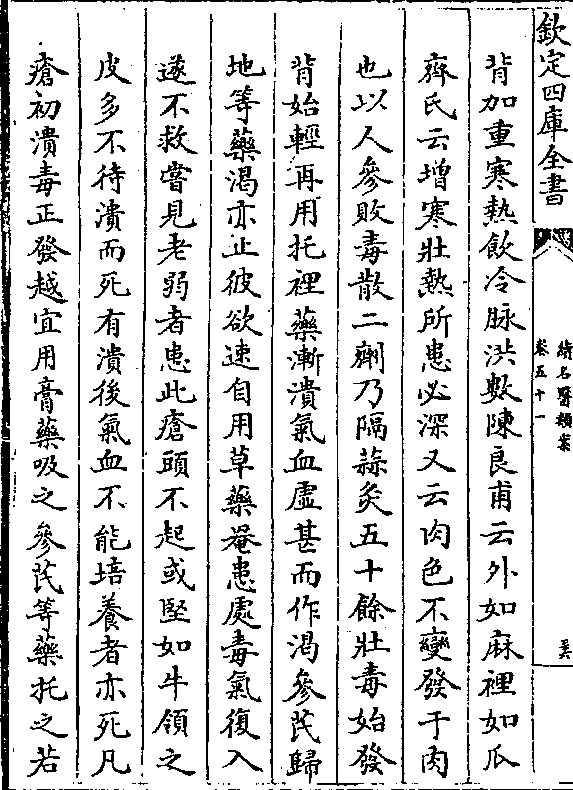 欽定四庫全書
續名醫類案
卷五十一
背加重寒熱飲冷脉洪數陳良甫云外如麻裡如瓜
齊氏云增寒壯熱所患必深又云肉色不變發于肉
也以人參敗毒散二劑乃隔蒜灸五十餘壯毒始發
背始輕再用托裡藥漸潰氣血虛甚而作渴參芪歸
地等藥渴亦止彼欲速自用草藥菴患處毒氣復入
遂不救嘗見老弱者患此瘡頭不起或堅如牛領之
皮多不待潰而死有潰後氣血不能培養者亦死凡
瘡初潰毒正發越宜用膏藥吸之參芪等藥托之若